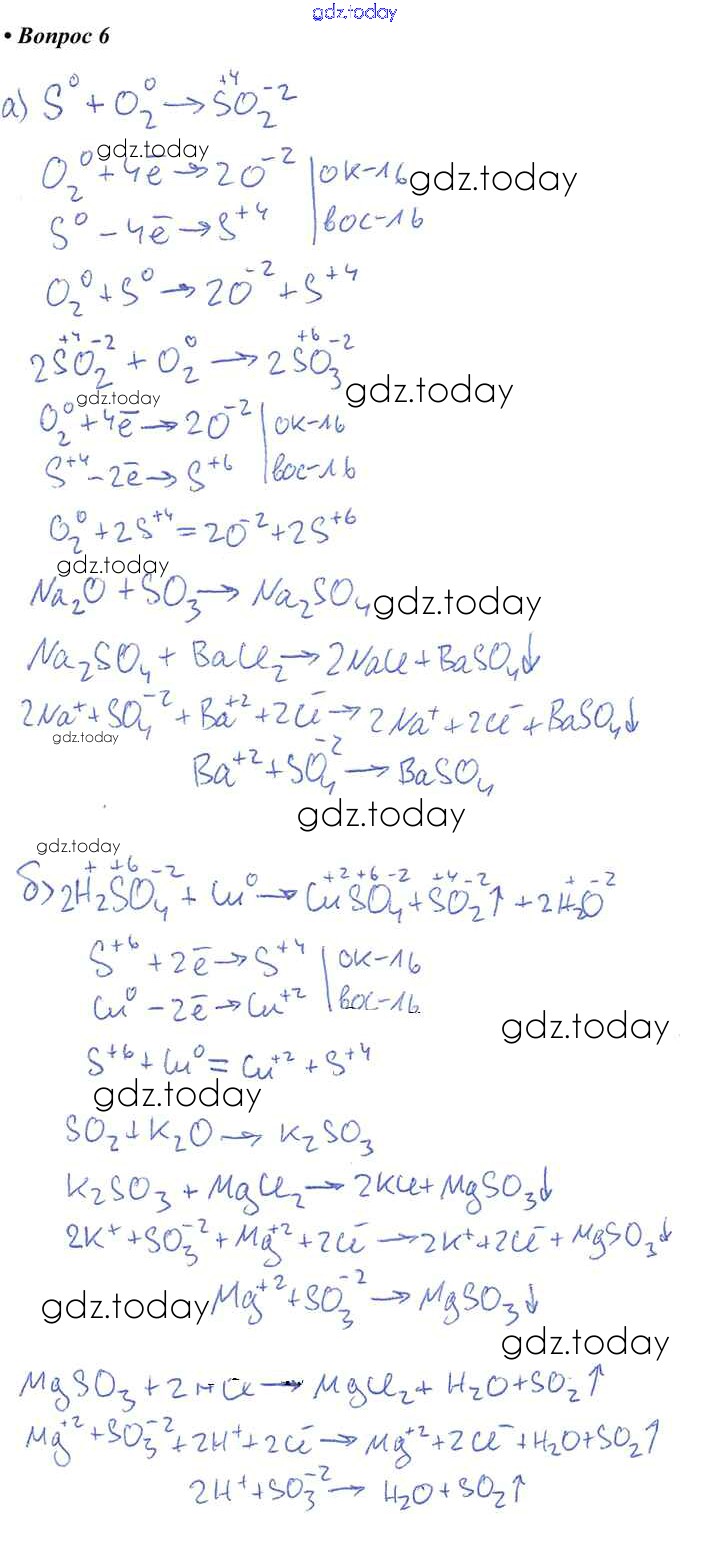 gdz.today
• Вопрос 6
а) S⁰ + O₂⁰ → S⁺⁴O₂⁻²
gdz.today
O₂⁰ + 4ē → 2O⁻² | ок-ль
gdz.today
S⁰ - 4ē → S⁺⁴ | вос-ль
O₂⁰ + S⁰ → 2O⁻² + S⁺⁴
2S⁺⁴O₂⁻² + O₂⁰ → 2S⁺⁶O₃⁻²
gdz.today
gdz.today
O₂⁰ + 4ē → 2O⁻² | ок-ль
S⁺⁴ - 2ē → S⁺⁶ | вос-ль
O₂⁰ + 2S⁺⁴ = 2O⁻² + 2S⁺⁶
gdz.today
Na₂O + SO₃ → Na₂SO₄
gdz.today
Na₂SO₄ + BaCl₂ → 2NaCl + BaSO₄↓
2Na⁺ + SO₄⁻² + Ba⁺² + 2Cl⁻ → 2Na⁺ + 2Cl⁻ + BaSO₄↓
gdz.today
Ba⁺² + SO₄⁻² → BaSO₄
gdz.today
gdz.today
б) 2H₂⁺S⁺⁶O₄⁻² + Cu⁰ → Cu⁺²S⁺⁶O₄⁻² + S⁺⁴O₂⁻²↑ + 2H₂⁺O⁻²
S⁺⁶ + 2ē → S⁺⁴ | ок-ль
Cu⁰ - 2ē → Cu⁺² | вос-ль
gdz.today
S⁺⁶ + Cu⁰ = Cu⁺² + S⁺⁴
gdz.today
SO₂ + K₂O → K₂SO₃
K₂SO₃ + MgCl₂ → 2KCl + MgSO₃↓
2K⁺ + SO₃⁻² + Mg⁺² + 2Cl⁻ → 2K⁺ + 2Cl⁻ + MgSO₃↓
gdz.today
Mg⁺² + SO₃⁻² → MgSO₃↓
gdz.today
MgSO₃ + 2HCl → MgCl₂ + H₂O + SO₂↑
Mg⁺² + SO₃⁻² + 2H⁺ + 2Cl⁻ → Mg⁺² + 2Cl⁻ + H₂O + SO₂↑
2H⁺ + SO₃⁻² → H₂O + SO₂↑